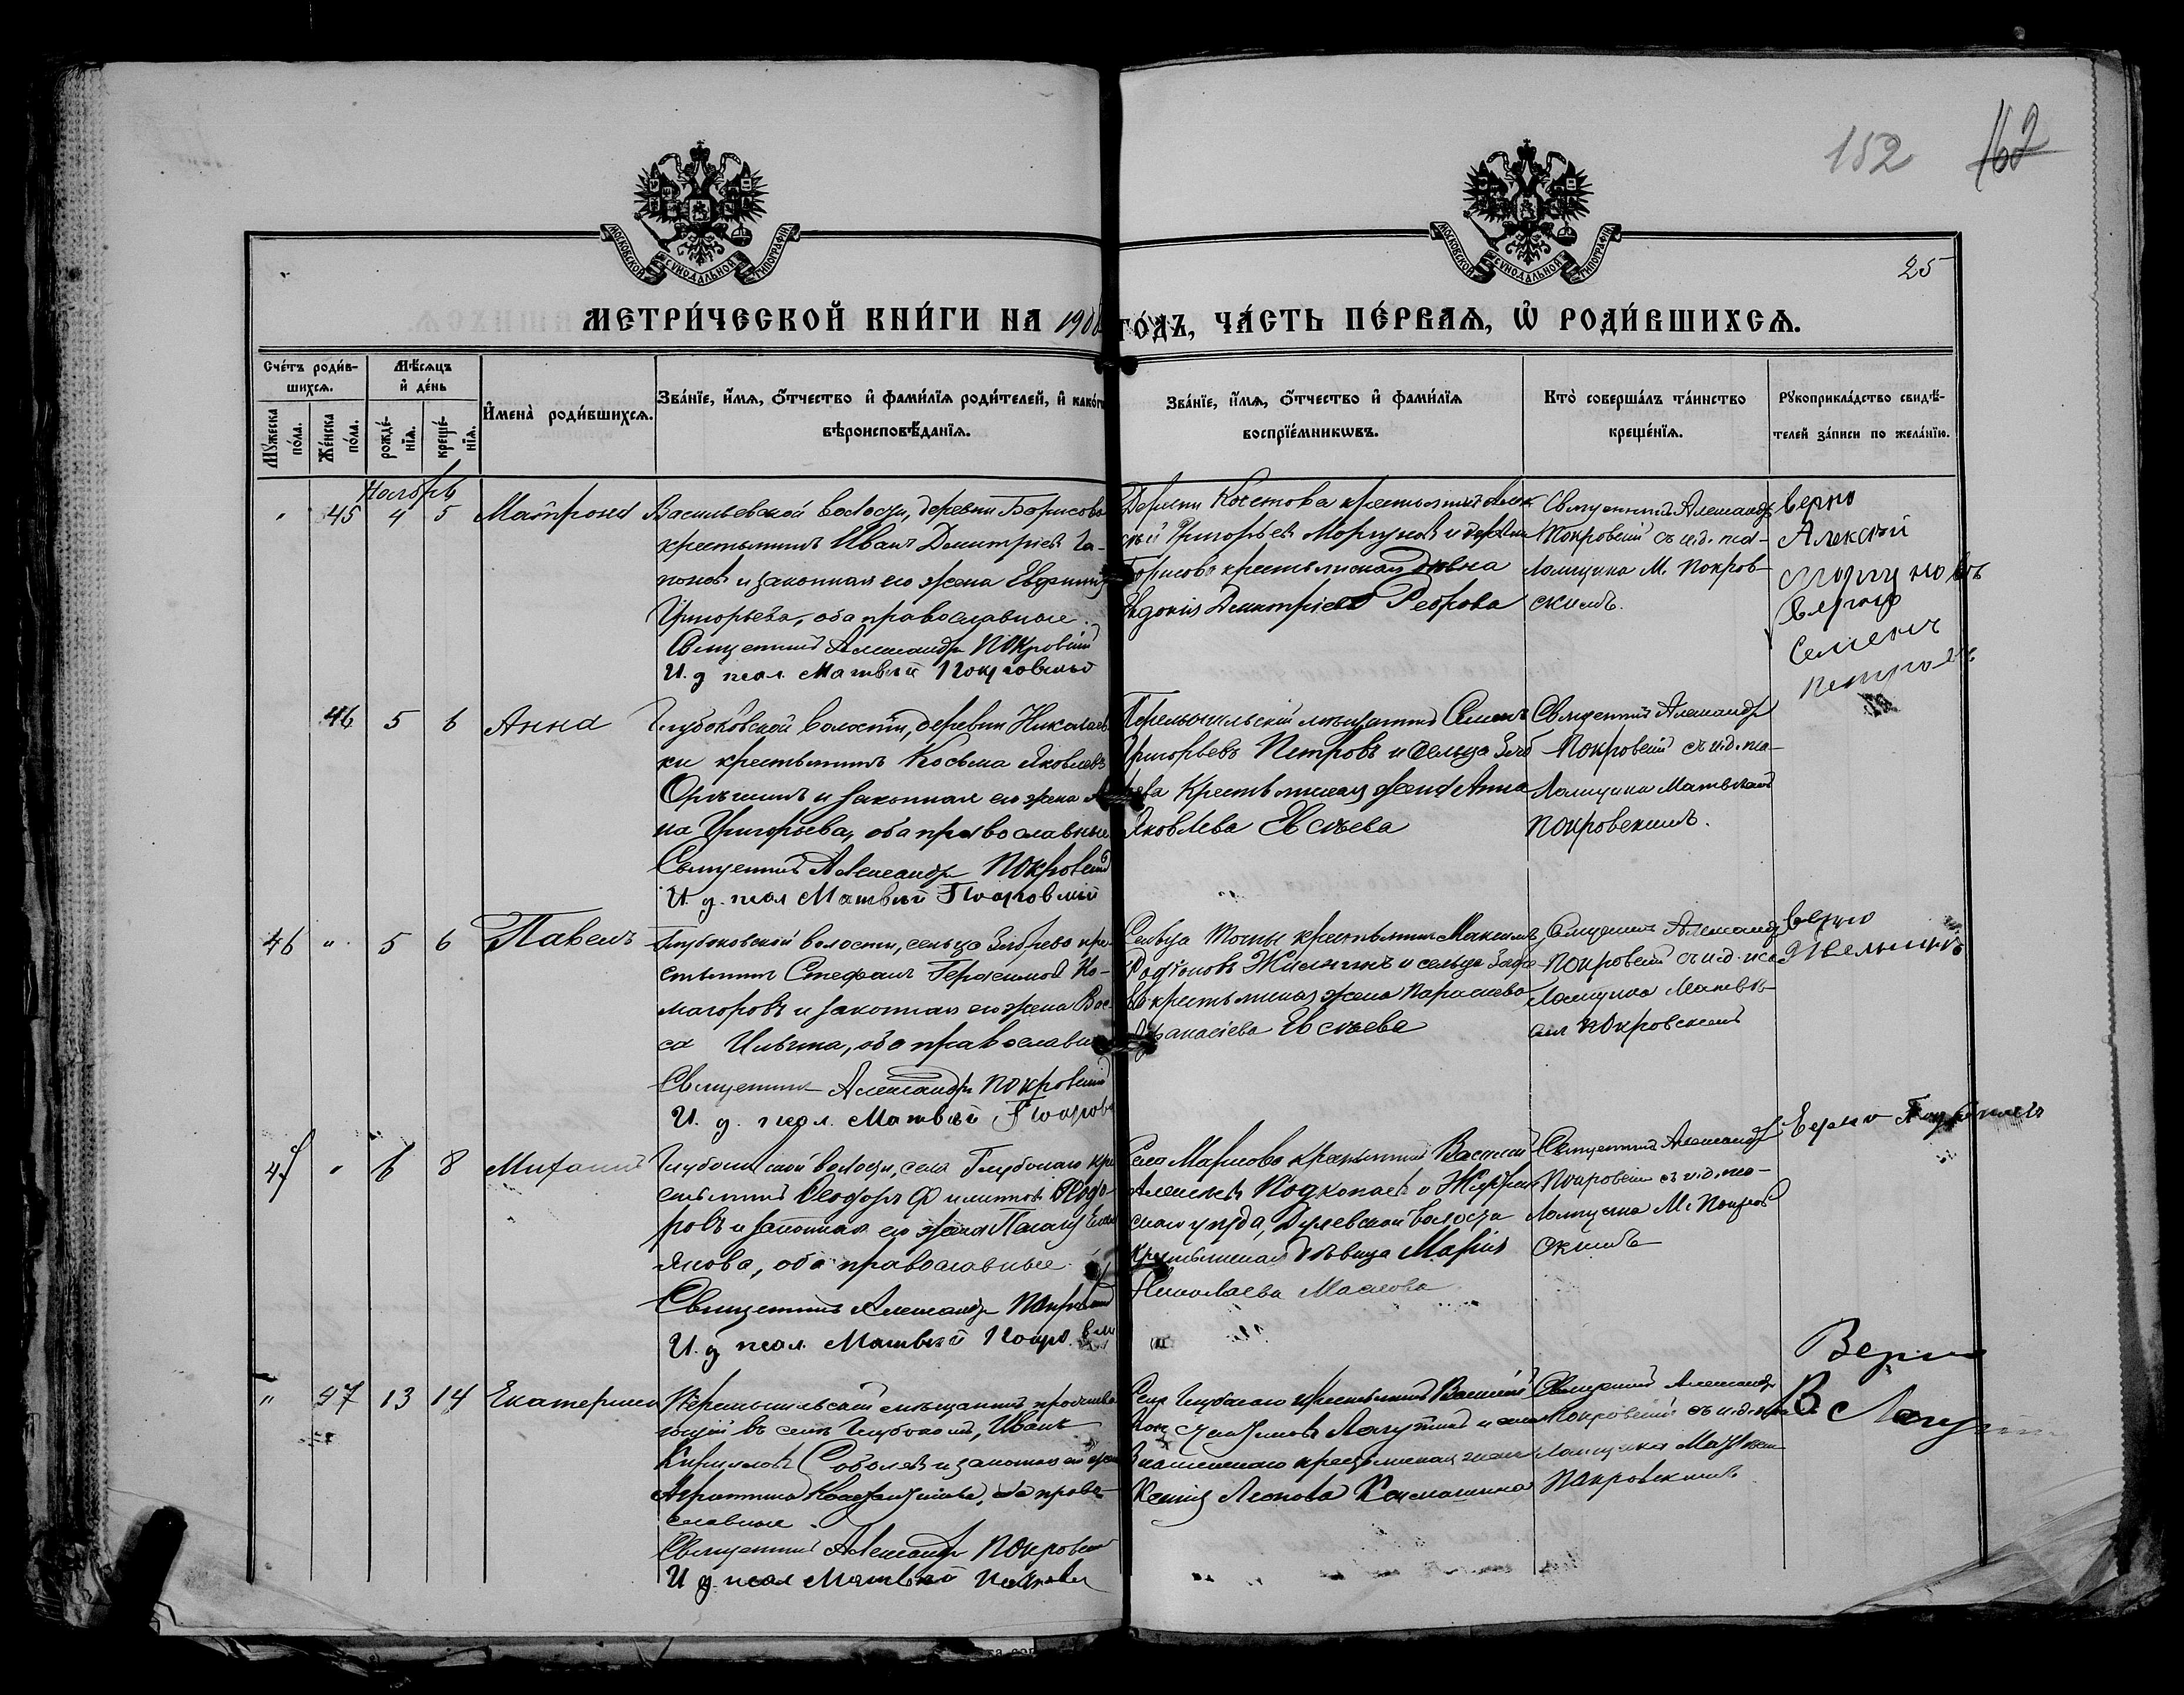 152 162
МОСКОВСКОЙ СѴНОДАЛЬНОЙ ТИПОГРАФІИ
МОСКОВСКОЙ СѴНОДАЛЬНОЙ ТИПОГРАФІИ
25
МЕТРИ́ЧЕСКОЙ КНИ́ГИ НА 190 ГО́ДЪ, ЧА́СТЬ ПЕ́РВАѦ, Ѡ҆ РОДИ́ВШИХСѦ.
Сче́тъ роди́в-
шихсѧ.
Мꙋ́жеска по́ла.
Же́нска по́ла.
Мѣ́сѧцъ
и҆ де́нь
рожде́-
нїѧ.
креще́-
нїѧ.
И҆мена̀ роди́вшихсѧ.
Зва́нїе, и҆́мѧ, ѻ҆́тчество и҆ фами́лїѧ роди́телей, и҆ како́гѡ
вѣроисповѣ́данїѧ.
Зва́нїе, и҆́мѧ, ѻ҆́тчество и҆ фами́лїѧ
воспрїе́мникѡвъ.
Кто̀ соверша́лъ та́инство
креще́нїѧ.
Рꙋкоприкла́дство свидѣ́-
телей за́писи по жела́нїю.
Ноябрь
" 45 4 5 Матрона
Васильевской волости, деревни Борисово
крестьянинъ Иванъ Димитріевъ Га-
поновъ и законная его жена Евфимія
Григорьева, оба православные.
Священникъ Александръ Покровскій
И. д. псал. Матвѣй Покровскій
Деревни Кочетова крестьянинъ Алек
сѣй Григорьевъ Моргуновъ и деревни
Борисово крестьянская дѣвица
Евдокія Димитріева Реброва
Священникъ Александръ
Покровскій съ и.д. пса-
ломщика М. Покров-
скимъ.
верно
Алексѣй
Моргуновъ
Верно
Семенъ
Петровъ
46 5 6 Анна
Глубоковской волости, деревни Николаев
ки крестьянинъ Косьма Яковлевъ
и законная его жена
на Григорьева, оба православные
Священникъ Александръ Покровскій
И. д. псал Матвѣй Покровскій
Перемышльскій мѣщанинъ Семенъ
Григорьевъ Петровъ и сельца Зябр
ева крестьянская жена Анна
Яковлева Евсѣева
Священникъ Александръ
Покровскій съ и.д. пса-
ломщика Матвѣемъ
Покровскимъ.
46 " 5 6 Павелъ
Глубоковской волости, сельца Зябрево кре-
стьянинъ Стефанъ Герасимовъ Ко-
маровъ и законная его жена Вас-
са Ильина, оба православны
Священникъ Александръ Покровскій
И. д. псал. Матвѣй Покров
Сельца крестьянинъ Максимъ
Родіоновъ и сельца Зябре
во крестьянская жена Параскева
Афанасіева Евсѣева
Священникъ Александръ
Покровскій съ и.д. пса
ломщика Матвѣ-
емъ Покровскимъ
верно
47 " 6 8 Михаилъ
Глубоковской волости, села Глубокаго кре
стьянинъ Ѳеодоръ Филипповъ Ѳедо-
ровъ и законная его жена Пелагія
Яковл ова, оба православные.
Священникъ Александръ Покровскій
И. д. псал. Матвѣй Покровскій
Села Марково крестьянинъ Василій
Алексѣевъ Подкопаевъ и Жиздрин-
скаго уѣзда, волости
крестьянская дѣвица Марія
Николаева Маслова
Священникъ Александръ
Покровскій съ и.д. пса-
ломщика М. Покров
скимъ
Верно
" 47 13 14 Екатерина
Перемышльскій мѣщанинъ прожива
ющій въ селѣ Глубокомъ, Иванъ
Кирилловъ Соболевъ и законная его жена
Агриппина Константинова, оба право-
славные.
Священникъ Александръ Покровскій
И д. псал Матвѣй Покровск
Села Глубокаго крестьянинъ Василій
Константиновъ Лагутинъ и села
крестьянская жена
Ксенія Леонова
Священникъ Александръ
Покровскій съ и.д. пса
ломщика Матвѣем
Покровскимъ
Верно
В Лагутин